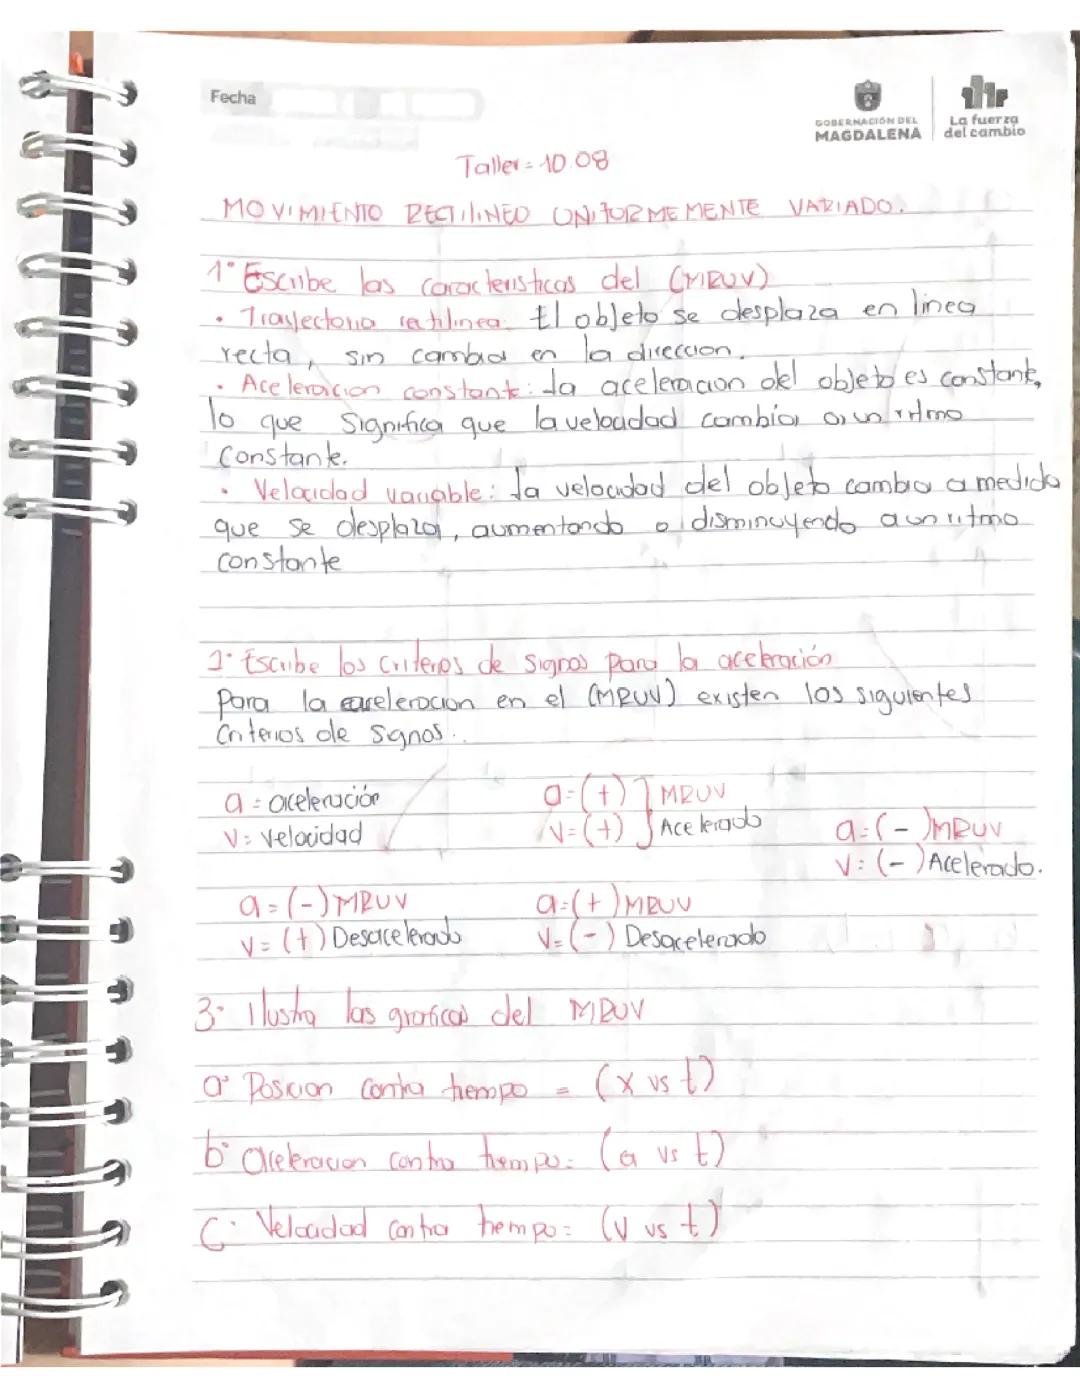 Fecha
GOBERNACIÓN DEL
MAGDALENA
La fuerza
del cambio
Taller = 10.08
MOVIMIENTO RECTILINEO UNIFORMEMENTE VARIADO.
1° Escribe las caracteristicas del (MRUV)
• Trayectoria rectilinea: El objeto se desplaza en linea
recta, sin cambiar en la direccion.
• Aceleracion constante: La aceleracion del objeto es constante,
lo que significa que la velocidad cambia a un ritmo
constante.
• Velocidad variable: La velocidad del objeto cambia a medida
que se desplaza, aumentando o disminuyendo a un ritmo
constante
2° Escribe los criterios de signos para la aceleración
Para la aceleracion en el (MRUV) existen los siguientes
criterios de signos..
a = aceleración
V = Velocidad
a = (+) ] MRUV
V = (+) ] Acelerado
a = (-) MRUV
V = (-) Acelerado.
a = (-) MRUV
V = (+) Desacelerado
a = (+) MRUV
V = (-) Desacelerado
3° Ilustra las graficas del MRUV
a° Posicion contra tiempo = (x vs t)
b° aceleracion contra tiempo = (a vs t)
C° Velocidad contra tiempo = (V vs t)